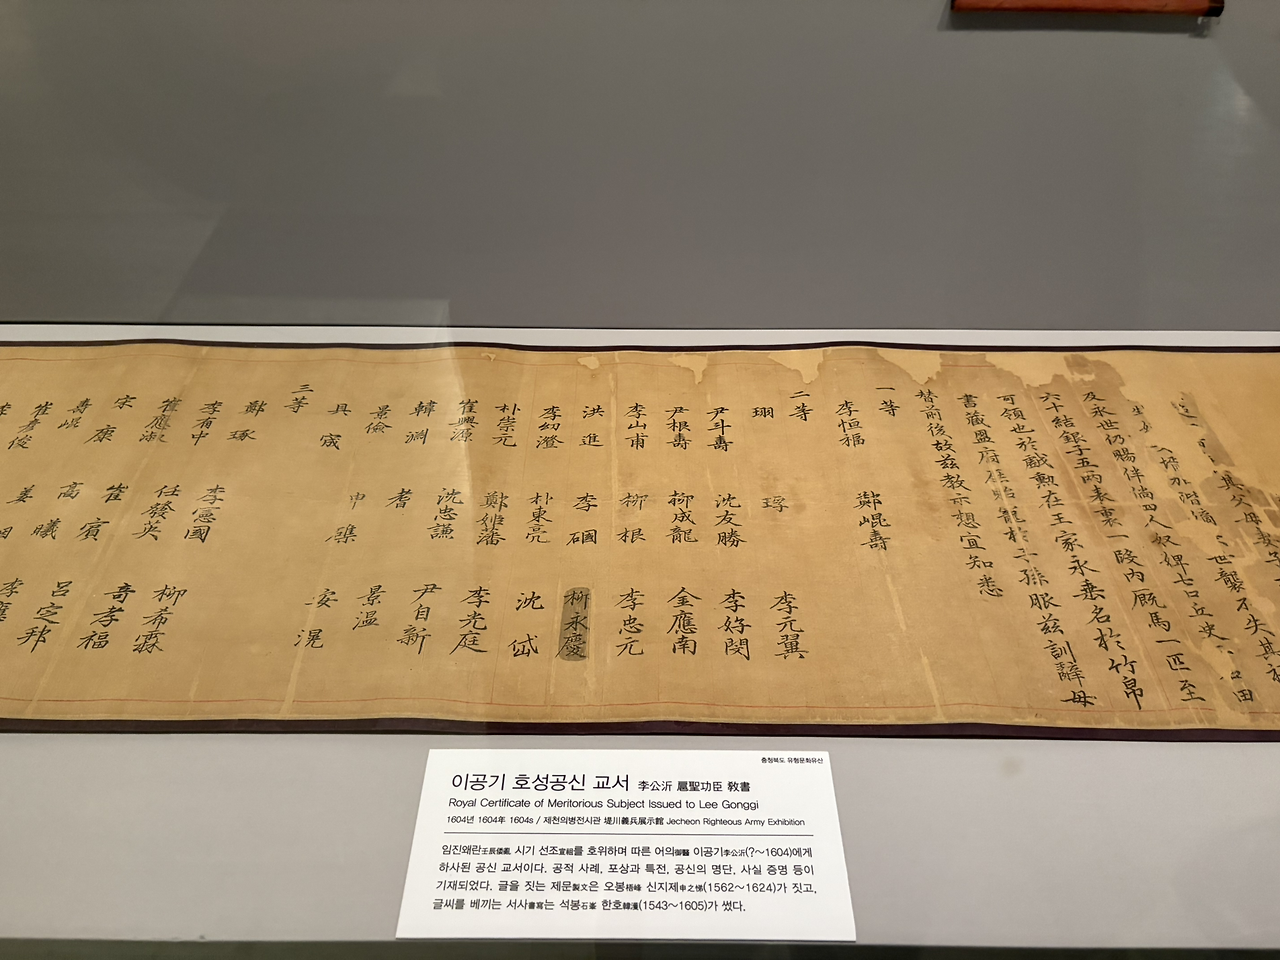 其父母妻子
世襲不失其
及永世仍賜伴倘四人奴婢七口丘史
六十結銀子五兩表裏一段內厩馬一匹至
可領也於戲勳在王家永垂名於竹帛
書藏盟府庶貽寵於子孫服玆訓辭毋
替前後故玆敎示想宜知悉
一等
李恒福 鄭崐壽
二等
珝 琈 李元翼
尹斗壽 沈友勝 李好閔
尹根壽 柳成龍 金應南
李山甫 柳根 李忠元
洪進 李𥕏 柳永慶
李幼澄 朴東亮 沈岱
朴崇元 鄭姬藩 李光庭
崔興源 沈忠謙 尹自新
韓淵 耆 景溫
景儉 申磼 安滉
具宬
三等
鄭琢 李憲國 柳希霖
李有中 任發英 奇孝福
崔應淑 崔賓 呂定邦
宋康 高曦 李應
壽崐 姜
崔彦俊
충청북도 유형문화유산
이공기 호성공신 교서 李公沂 扈聖功臣 敎書
Royal Certificate of Meritorious Subject Issued to Lee Gonggi
1604년 1604年 1604s / 제천의병전시관 堤川義兵展示館 Jecheon Righteous Army Exhibition
임진왜란壬辰倭亂 시기 선조宣祖를 호위하며 따른 어의御醫 이공기李公沂(?～1604)에게
하사된 공신 교서이다. 공적 사례, 포상과 특전, 공신의 명단, 사실 증명 등이
기재되었다. 글을 짓는 제문製文은 오봉梧峰 신지제申之悌(1562～1624)가 짓고,
글씨를 베끼는 서사書寫는 석봉石峯 한호韓濩(1543～1605)가 썼다.